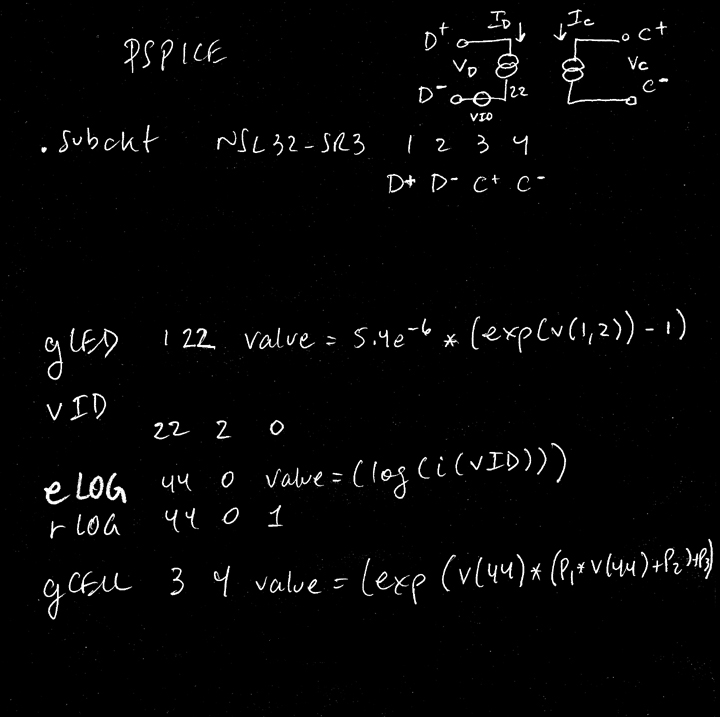 PSPICE
D+ ID IC C+
VD VC
D- 22 C-
VID
.subckt NSL32-SR3 1 2 3 4
D+ D- C+ C-
gLED 1 22 value = 5.4e-6 * (exp(v(1,2)) - 1)
vID
22 2 0
eLOG 44 0 value = (log(i(vID)))
rLOG 44 0 1
gCELL 3 4 value = (exp(v(44)*(P1*v(44)+P2)+P3)